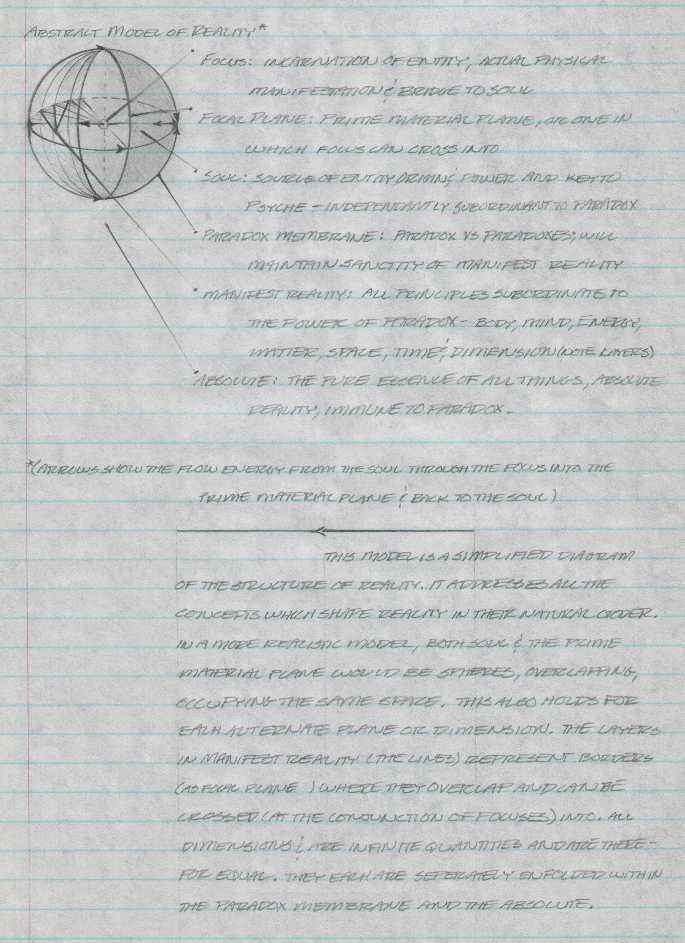 ABSTRACT MODEL OF REALITY*
• FOCUS: INCARNATION OF ENTITY, ACTUAL PHYSICAL
MANIFESTATION & BRIDGE TO SOUL
• FOCAL PLANE: PRIME MATERIAL PLANE, OR ONE IN
WHICH FOCUS CAN CROSS INTO
• SOUL: SOURCE OF ENTITY ORIGIN, POWER AND KEY TO
PSYCHE - INDEPENDANTLY SUBORDINANT TO PARADOX
• PARADOX MEMBRANE: PARADOX VS PARADOXES; WILL
MAINTAIN SANCTITY OF MANIFEST REALITY
• MANIFEST REALITY: ALL PRINCIPLES SUBORDINATE TO
THE POWER OF PARADOX - BODY, MIND, ENERGY,
MATTER, SPACE, TIME, & DIMENSION (NOTE LAYERS)
• ABSOLUTE: THE PURE ESSENCE OF ALL THINGS, ABSOLUTE
REALITY, IMMUNE TO PARADOX.
*(ARROWS SHOW THE FLOW ENERGY FROM THE SOUL THROUGH THE FOCUS INTO THE
PRIME MATERIAL PLANE & BACK TO THE SOUL)
THIS MODEL IS A SIMPLIFIED DIAGRAM
OF THE STRUCTURE OF REALITY. IT ADDRESSES ALL THE
CONCEPTS WHICH SHAPE REALITY IN THEIR NATURAL ORDER.
IN A MORE REALISTIC MODEL, BOTH SOUL & THE PRIME
MATERIAL PLANE WOULD BE SPHERES, OVERLAPPING,
OCCUPYING THE SAME SPACE. THIS ALSO HOLDS FOR
EACH ALTERNATE PLANE OR DIMENSION. THE LAYERS
IN MANIFEST REALITY (THE LINES) REPRESENT BORDERS
(AS FOCAL PLANE ) WHERE THEY OVERLAP AND CAN BE
CROSSED (AT THE CONJUNCTION OF FOCUSES) INTO. ALL
DIMENSIONS & ARE INFINITE QUANTITIES AND ARE THERE-
FOR EQUAL. THEY EACH ARE SEPERATELY ENFOLDED WITHIN
THE PARADOX MEMBRANE AND THE ABSOLUTE.